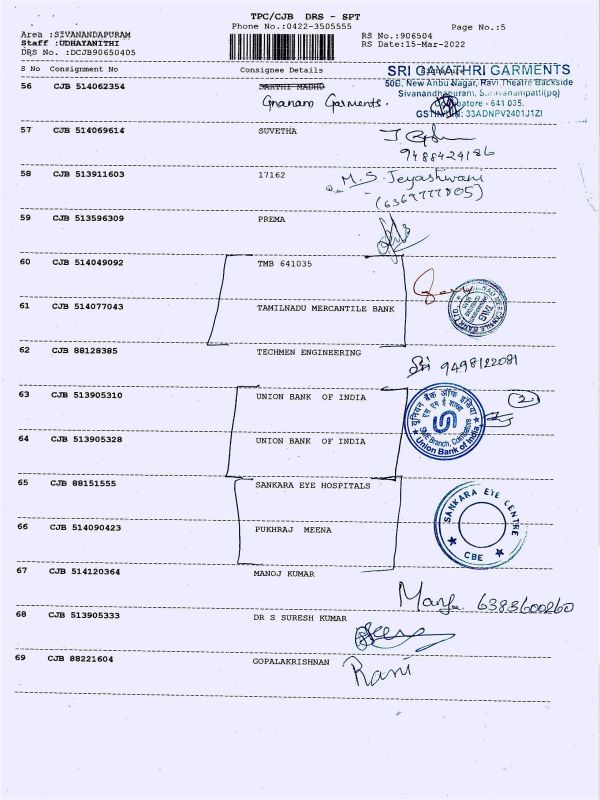 TPC/CJB DRS - SPT
Phone No.:0422-3505555
Page No.:5
Area :SIVANANDAPURAM
Staff :UDHAYANITHI
DRS No. :DCJB90650405
RS No.:906504
RS Date:15-Mar-2022
S No Consignment No Consignee Details
SRI GAYATHRI GARMENTS
50E, New Anbu Nagar, Ravi Theatre Backside
Sivanandhapuram, Saravanampatti(po)
Coimbatore - 641 035.
GSTIN/UIN: 33ADNPV2401J1ZI
56 CJB 514062354 SAKTHI MADHU
Gnanam Garments.
57 CJB 514069614 SUVETHA
9488424186
58 CJB 513911603 17162
M.S. Jeyashwani
(6369777805)
59 CJB 513596309 PREMA
60 CJB 514049092 TMB 641035
61 CJB 514077043 TAMILNADU MERCANTILE BANK
62 CJB 88128385 TECHMEN ENGINEERING
9498122081
63 CJB 513905310 UNION BANK OF INDIA
2
यूनियन बैंक ऑफ इंडिया
SME Branch, Coimbatore
Union Bank of India
64 CJB 513905328 UNION BANK OF INDIA
65 CJB 88151555 SANKARA EYE HOSPITALS
SANKARA EYE CENTRE
CBE
66 CJB 514090423 PUKHRAJ MEENA
67 CJB 514120364 MANOJ KUMAR
6383600260
68 CJB 513905333 DR S SURESH KUMAR
69 CJB 88221604 GOPALAKRISHNAN
Rani